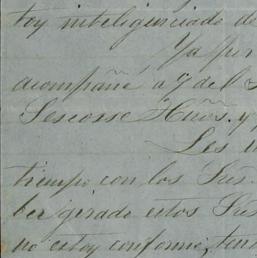 toy inteligenciado de
Ya por
acompañé a 7 del
Sescosse Hños. y
Les
tiempo con los Sres.
ber girado estos Sres
no estoy conforme, ten